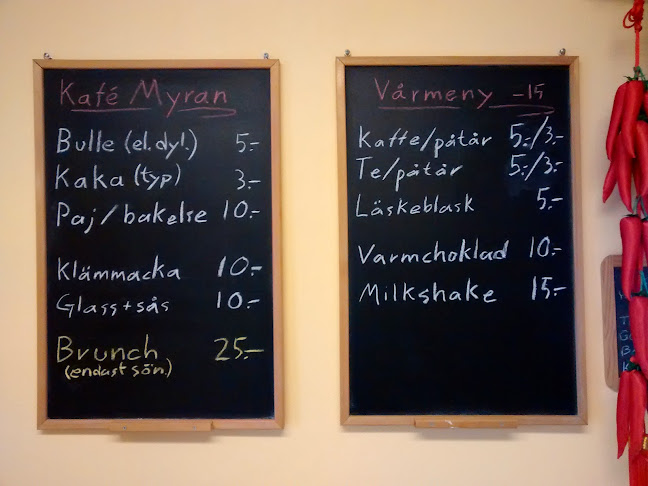 Kafé Myran
Bulle (el. dyl.) 5:-
Kaka (typ) 3:-
Paj/bakelse 10:-
Klämmacka 10:-
Glass+sås 10:-
Brunch 25:-
(endast sön.)
Vårmeny -15
Kaffe/påtår 5:-/3:-
Te/påtår 5:-/3:-
Läskeblask 5:-
Varmchoklad 10:-
Milkshake 15:-